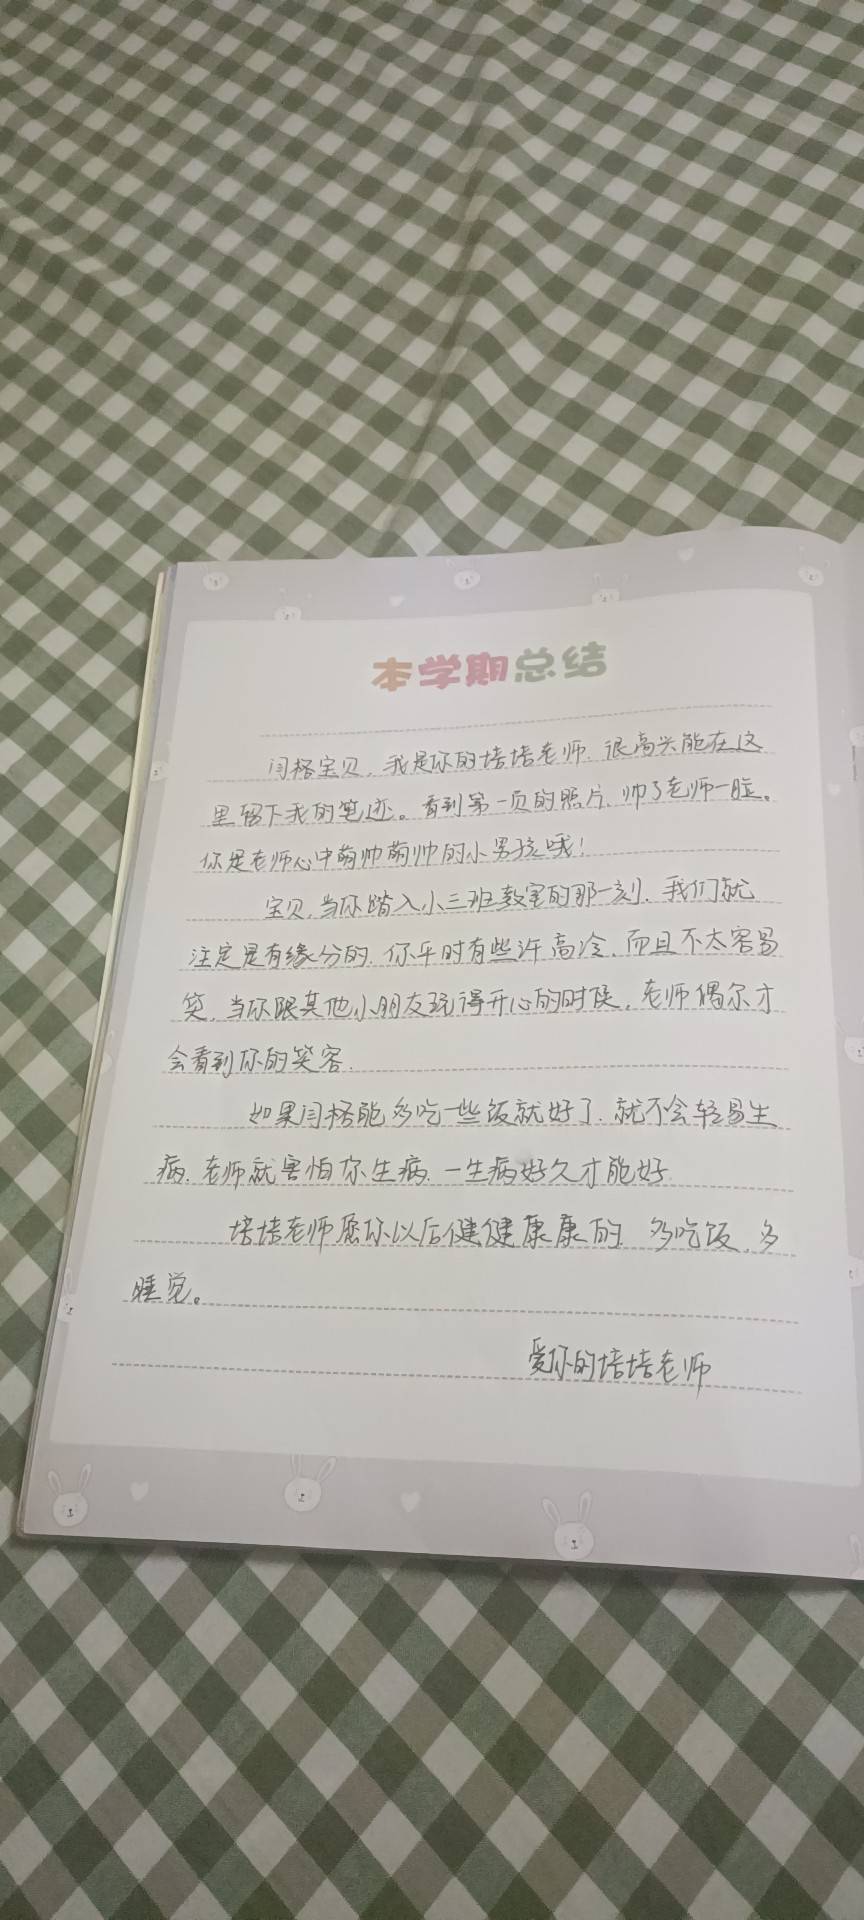 本学期总结
闫格宝贝，我是你的培培老师，很高兴能在这
里留下我的笔迹。看到第一页的照片，帅了老师一脸。
你是老师心中萌帅萌帅的小男孩哦！
宝贝，当你踏入小三班教室的那一刻，我们就
注定是有缘分的，你平时有些许高冷，而且不太容易
笑，当你跟其他小朋友玩得开心的时候，老师偶尔才
会看到你的笑容.
如果闫格能多吃一些饭就好了，就不会轻易生
病，老师就害怕你生病，一生病好久才能好
培培老师愿你以后健健康康的，多吃饭，多
睡觉。
爱你的培培老师